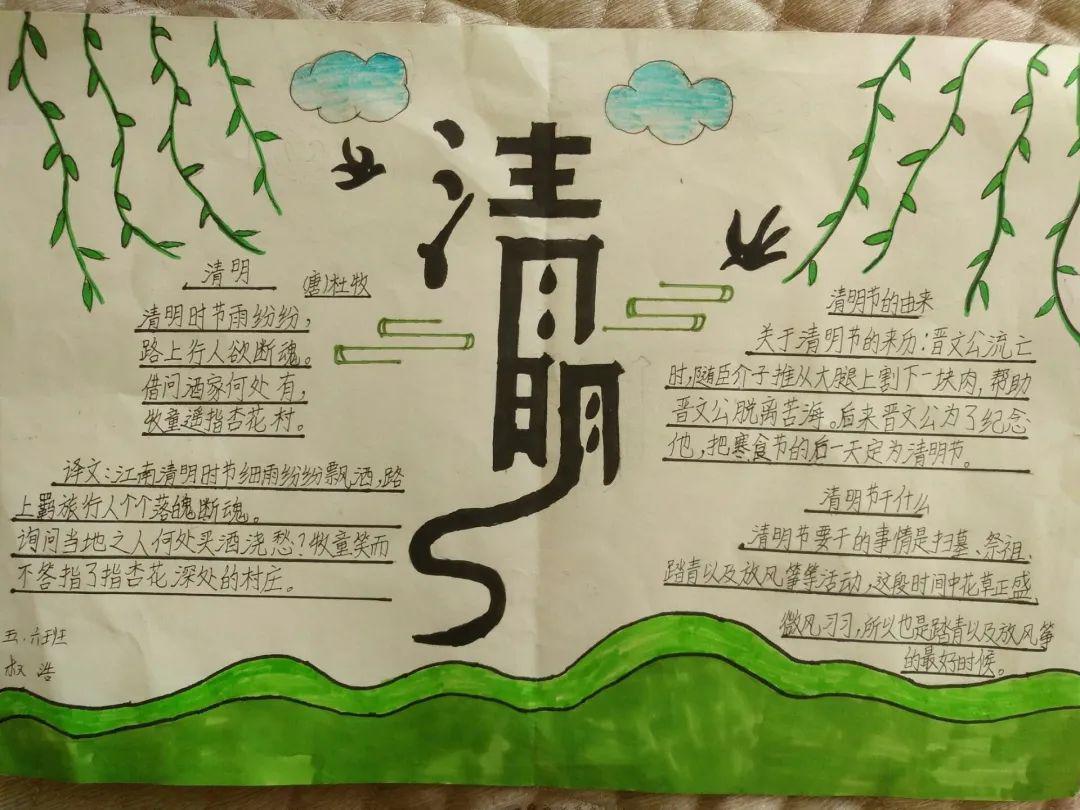 清明
清明
(唐)杜牧
清明时节雨纷纷，
路上行人欲断魂。
借问酒家何处有，
牧童遥指杏花村。
译文：江南清明时节细雨纷纷飘洒，路
上羁旅行人个个落魄断魂。
询问当地之人何处买酒浇愁？牧童笑而
不答指了指杏花深处的村庄。
五.六班
权浩
清明节的由来
关于清明节的来历：晋文公流亡
时，随臣介子推从大腿上割下一块肉，帮助
晋文公脱离苦海。后来晋文公为了纪念
他，把寒食节的后一天定为清明节。
清明节干什么
清明节要干的事情是扫墓、祭祖、
踏青以及放风筝等活动，这段时间中花草正盛，
微风习习，所以也是踏青以及放风筝
的最好时候。